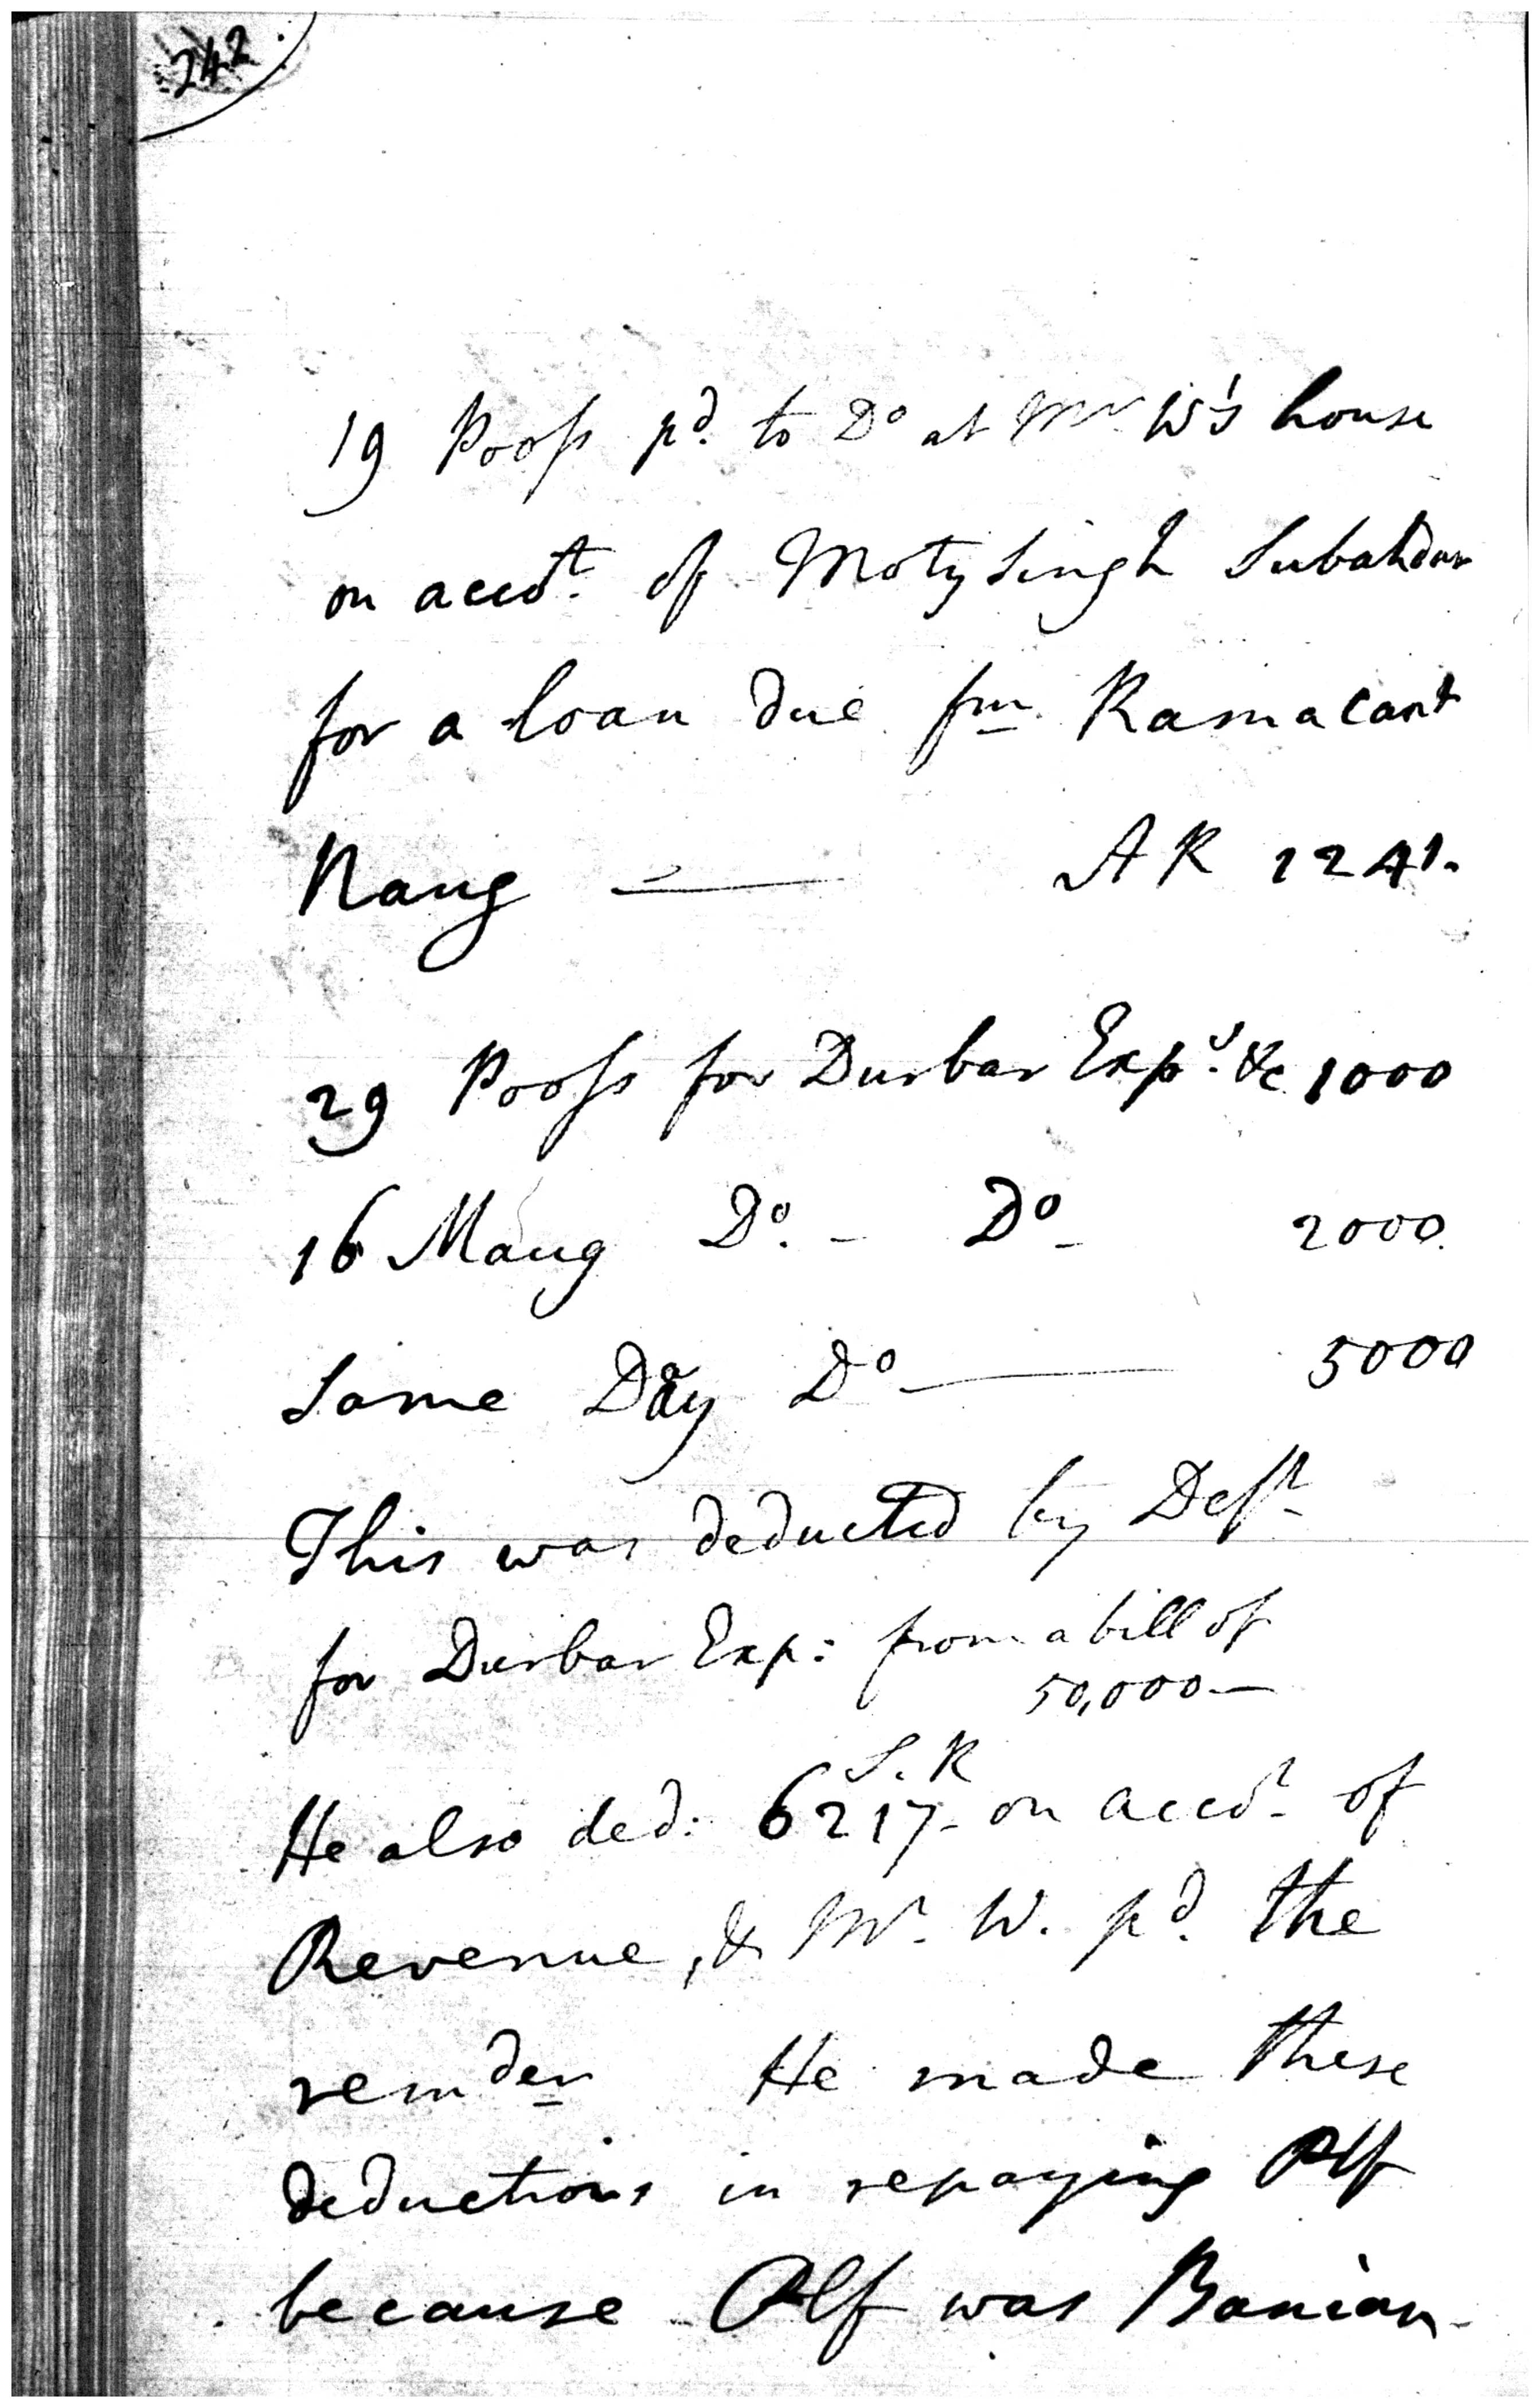 242
19 Pooss pd. to Do at Mr W's house
on accot. of Moty Singh Subahdar
for a loan due fm Ramacant
Naug — AR 1241.
29 Pooss for Durbar Exps. &c 1000
16 Maug Do. - Do - 2000
Same Day Do — 5000
This was deducted by Deft
for Durbar Exp: from a bill of
50,000 —
S. R
He also ded: 6217 - on accot of
Revenue, & Mr. W. pd. the
remder He made these
deductions in repaying Plf
because Plf was Banian